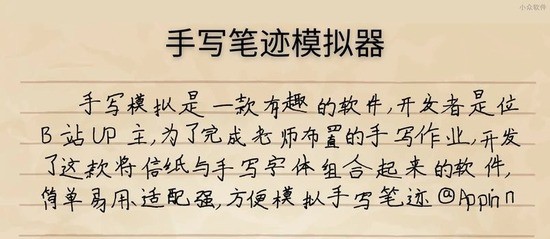 小众软件
手写笔迹模拟器
手写模拟是一款有趣的软件,开发者是位
B站UP主,为了完成老师布置的手写作业,开发
了这款将信纸与手写字体组合起来的软件,
简单易用、适配强,方便模拟手写笔迹@Appinn